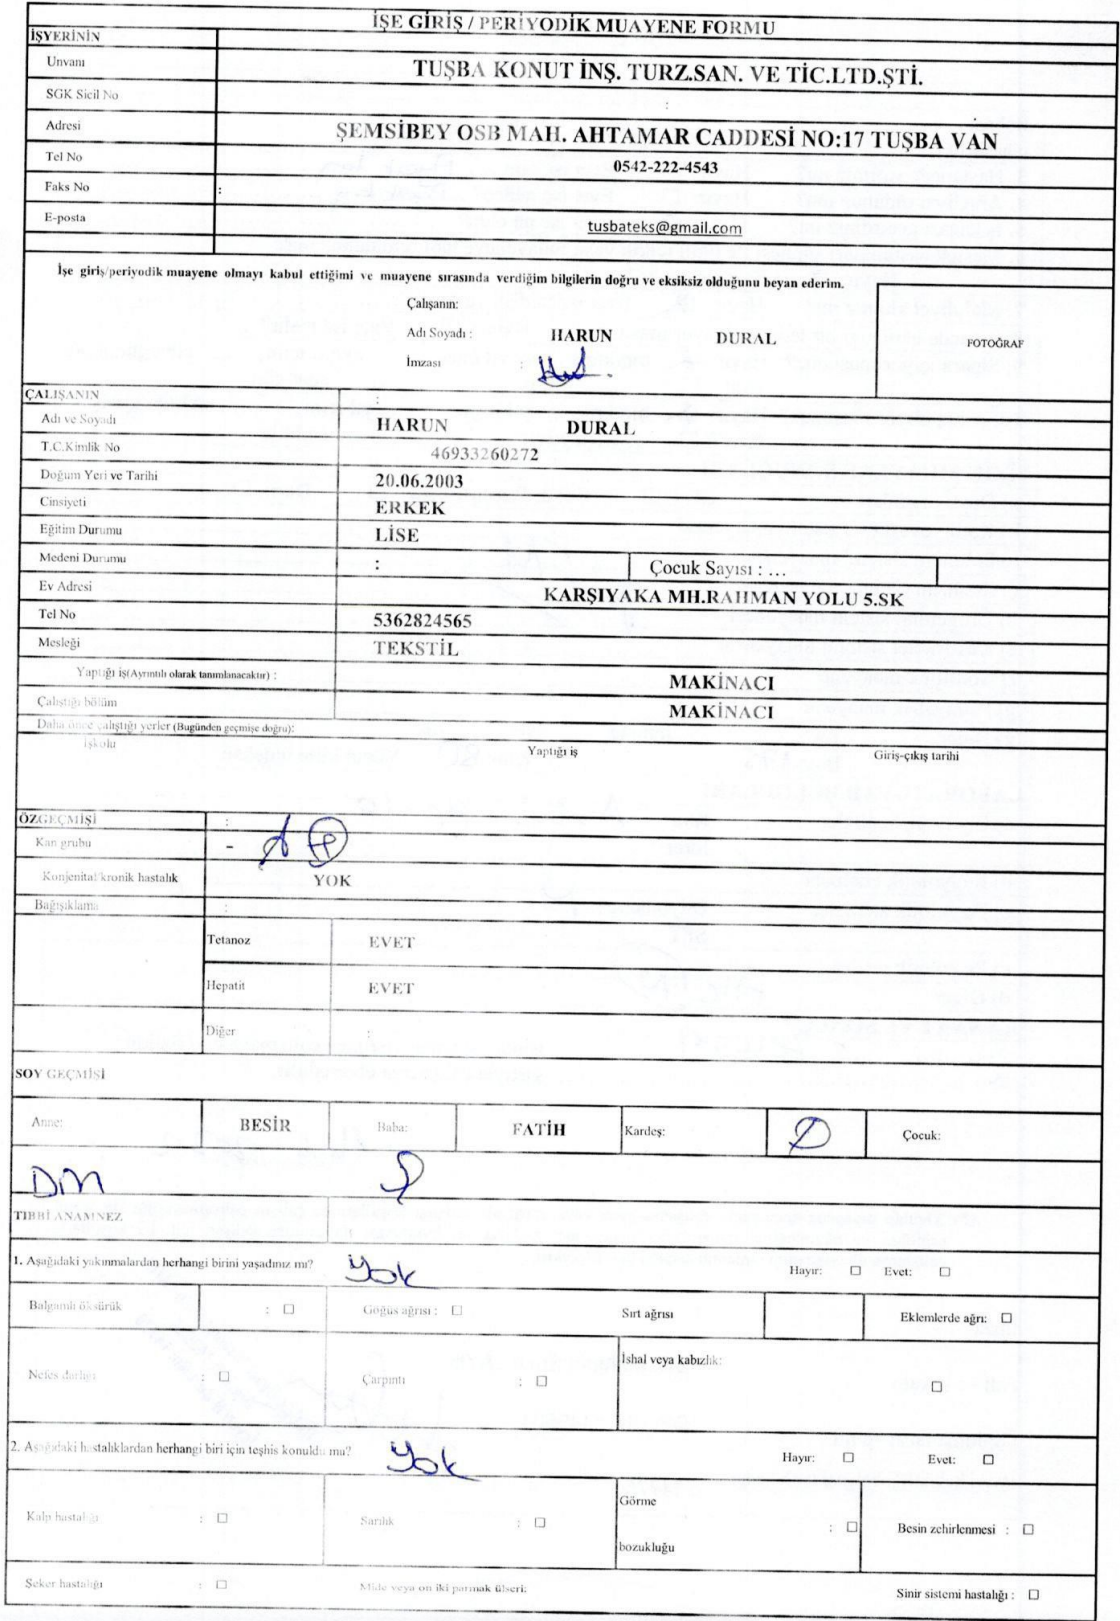 İŞE GİRİŞ / PERİYODİK MUAYENE FORMU
İŞYERİNİN
Unvanı TUŞBA KONUT İNŞ. TURZ.SAN. VE TİC.LTD.ŞTİ.
SGK Sicil No :
Adresi ŞEMSİBEY OSB MAH. AHTAMAR CADDESİ NO:17 TUŞBA VAN
Tel No 0542-222-4543
Faks No :
E-posta tusbateks@gmail.com
İşe giriş/periyodik muayene olmayı kabul ettiğimi ve muayene sırasında verdiğim bilgilerin doğru ve eksiksiz olduğunu beyan ederim.
Çalışanın:
Adı Soyadı : HARUN DURAL
FOTOĞRAF
İmzası :
ÇALIŞANIN :
Adı ve Soyadı HARUN DURAL
T.C.Kimlik No 46933260272
Doğum Yeri ve Tarihi 20.06.2003
Cinsiyeti ERKEK
Eğitim Durumu LİSE
Medeni Durumu : Çocuk Sayısı : ...
Ev Adresi KARŞIYAKA MH.RAHMAN YOLU 5.SK
Tel No 5362824565
Mesleği TEKSTİL
Yaptığı iş(Ayrıntılı olarak tanımlanacaktır) : MAKİNACI
Çalıştığı bölüm MAKİNACI
Daha önce çalıştığı yerler (Bugünden geçmişe doğru):
İşkolu Yaptığı iş Giriş-çıkış tarihi
ÖZGEÇMİŞİ :
Kan grubu - A (+)
Konjenital/kronik hastalık YOK
Bağışıklama :
Tetanoz EVET
Hepatit EVET
Diğer :
SOY GEÇMİŞİ
Anne: BESİR Baba: FATİH Kardeş: Çocuk:
DM
TIBBİ ANAMNEZ
1. Aşağıdaki yakınmalardan herhangi birini yaşadınız mı? Yok Hayır: ☐ Evet: ☐
Balgamlı öksürük : ☐ Göğüs ağrısı : ☐ Sırt ağrısı Eklemlerde ağrı: ☐
Nefes darlığı : ☐ Çarpıntı : ☐ İshal veya kabızlık: ☐
2. Aşağıdaki hastalıklardan herhangi biri için teşhis konuldu mu? Yok Hayır: ☐ Evet: ☐
Kalp hastalığı : ☐ Sarılık : ☐ Görme bozukluğu : ☐ Besin zehirlenmesi : ☐
Şeker hastalığı : ☐ Mide veya on iki parmak ülseri: Sinir sistemi hastalığı : ☐